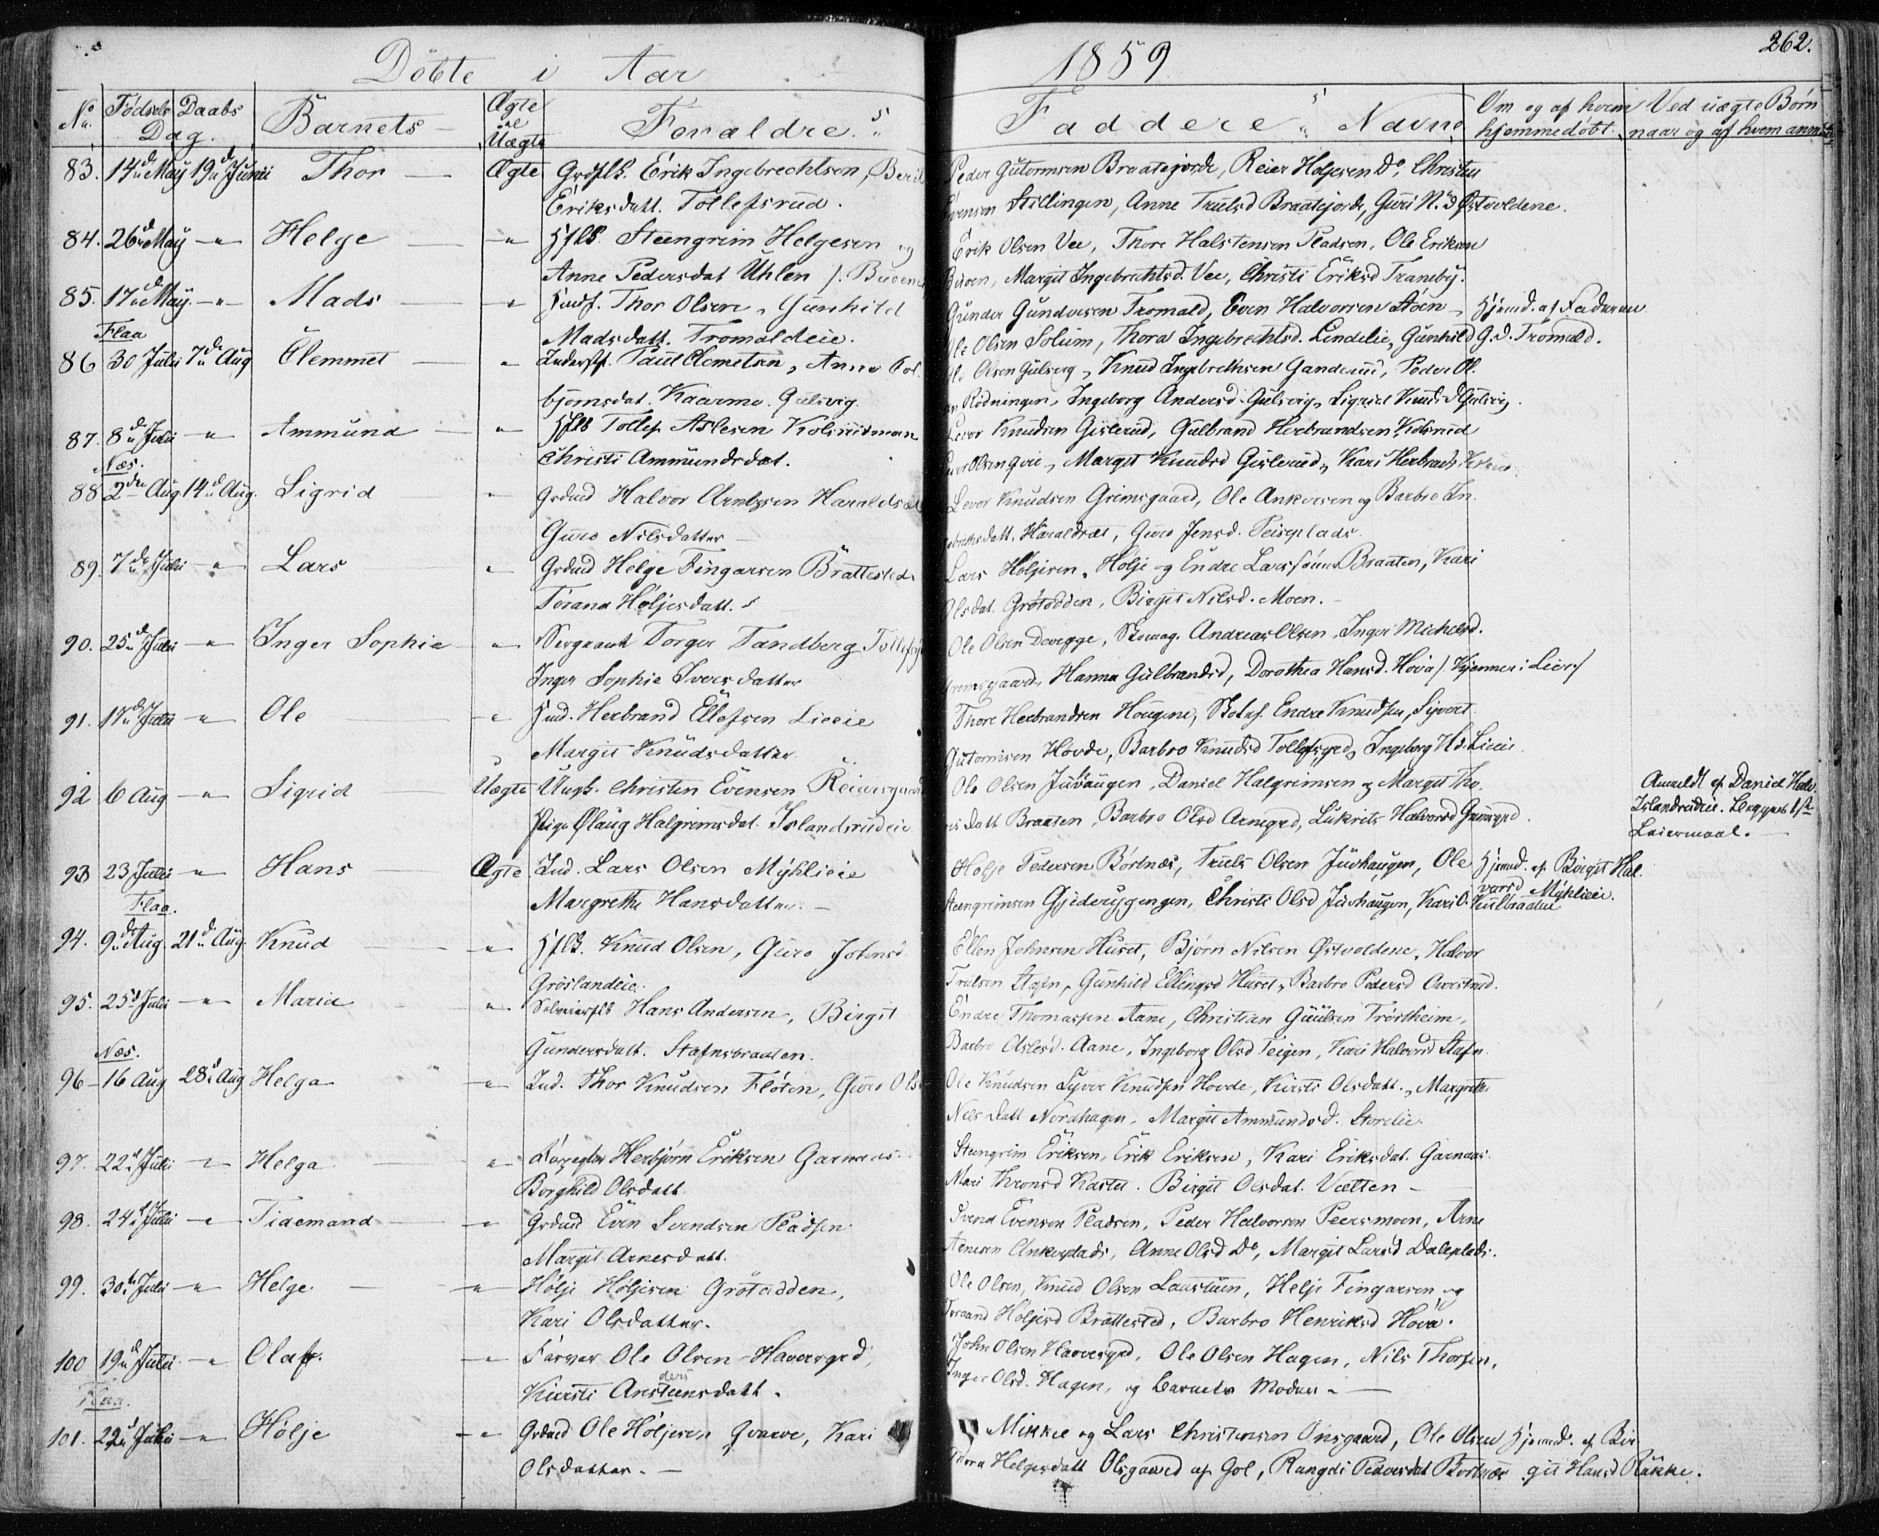 262.
Döbte i Aar 1859
No Födsels Daabs Dag. Barnets Ægte el Uægte Forældre Faddere Navne Om og af hvem hjemmedøbt Ved uægte Børn naar og af hvem anm
83. 14d May 19d Junii Thor Ægte Grdflk. Erik Ingebrechtsen, Berit
Eriksdatt. Tollefsrud.
Peder Gutormsen Braatejorde, Reier Holjesen Do, Christen
Evensen Stillingen, Anne Truls d Braatejorde, Guri N.d Østvoldene.
84. 26d May Helge Hflk. Steengrim Helgesen og
Anne Pedersdat Uhlen
Erik Olsen Vee, Thore Halstensen Pladsen, Ole Eriksen
Margit Ingebrechtsd. Vee, Christi Eriksd Traneby.
85. 17d May. Mads Thor Olsen, Gunhild
Madsdatt. Tromaldeie.
Gunder Gundersen Tromald, Even Halvorsen Støen, Hjemd. af Faderen
Ole Olsen Solum, Thora Ingebrechtsd. Lindelie, Gunhild G.d. Tromald.
Flaa
86 30 Julii 7de Aug Clemmet Inderstf. Paul Clemetsen, Anne Col
bjørnsdat. Kaarmo. Gulsvig.
Ole Olsen Gulsvig, Knud Ingebrethsen Ganderud, Peder Ol
sen Rödningen, Ingeborg Andersd Gulsvig, Sigrid Knudsd Gulsvig.
87. 8d Julii Ammund Hflk Tollef Aslesen Kolsrudmoen
Christi Ammundsdat.
Levor Knudsen Gislerud, Gulbrand Herbrandsen Kolsrud
Margit Knudsd Gislerud, Kari Herbrands
Næs.
88 2den Aug 14d Aug. Sigrid Grdmd Halvor Arntzen Haraldsæt
Guro Nilsdatter
Levor Knudsen Grimsgaard, Ole Ankersen og Barbro In
gebrethsdatt. Haraldsæt, Guro Jensd. Teiseplads.
89. 7de Julii Lars Grdmd Helge Fingarsen Brattested
Torand Holjesdatt.
Lars Holjesen, Holje og Endre Larssönner Braaten, Kari
Olsdat. Grötodden, Birgit Nilsd. Moen.
90. 25d Julii Inger Sophie Sergeant Torger Tandberg
Inger Sophie Iversdatter
Ole Olsen Andreas Olsen, Inger Michelsd.
Grimsgaard, Hanna Gulbrandsd, Dorothea Hansd. Hova / Hjemmer i Lier /
91. 17de Julii Ole Ind. Herbrand Ellefsen Lieeie
Margit Knudsdatter
Thore Herbrandsen Hougene, Endre Knudsen, Syvert
Gutormsen Hovde, Barbro Knudsd Tollefsgrd, Ingeborg H.d. Lieeie
92 6 Aug Sigrid Uægte Ungk. Christen Evensen Reiersgaard
Pige Ølaug Halgrimsdat. Islandsrudeie
Ole Olsen Juvhaugen, Daniel Halgrimsen og Margit Tho
resdatt Braaten, Barbro Olsd Arnegrd, Lukritz Halvorsd Grimsgrd.
Anmeldt af Daniel Hal
Islandsrudeie. Begges 1ste
Leiermaal.
93 23 Julii Hans Ægte Ind. Lars Olsen Myhlieie
Margrethe Hansdatter
Holje Pedersen Börtnæs, Truls Olsen Juvhaugen, Ole
Steengrimsen Gjiderygengen, Christi Olsd Juvhaugen, Kari O. Kulbraaten
Hjemd. af Birgit Hal
vorsd Myhlieie.
Flaa.
94. 9de Aug. 21d Aug. Knud Hflk. Knud Olsen, Guro Johnsd
Gröslandeie.
Ellen Johnsen Huset, Bjørn Nilsen Østvoldene, Halvor
Trulsen Stafn, Gunhild Ellingsd Huset, Barbro Pedersd Averstrud.
95. 25d Julii Maria Hans Andersen, Birgit
Gundersdatt. Stafnsbraaten.
Endre Thomassen Aane, Christian Guulsen Tröstheim,
Barbro Aslesd. Aane, Ingeborg Olsd Teigen, Kari Halvorsd Stafn
Næs.
96 16 Aug 28d Aug Helga Ind. Thor Knudsen Fløten, Guro Ols
Ole Knudsen Syver Knudsen Hovde, Kirsti Olsdatt., Margrethe
Nilsdatt Nordhagen, Margit Ammundsd. Stordie.
97. 22d Julii Helga Herbjörn Eriksen Garnaas
Borghild Olsdatt.
Steengrim Eriksen, Erik Eriksen, Kari Eriksdat. Garnaas.
Mari Birgit Olsdat. Vætten
98. 24d Julii Tidemand Grdmd Even Svendsen Pladsen
Margit Arnesdatt.
Svend Evensen Pladsen, Peder Halvorsen Peersmoen, Arne
Arnesen Ankerplads, Anne Olsd Do, Margit Larsd Daleplads.
99. 30te Julii Helge Holje Holjesen Grötodden,
Kari Olsdatter.
Ole Olsen, Knud Olsen Laastuen, Helje Fingarsen, og
Torand Holjesd Brattested, Barbro Henriksd Hova.
100 19d Julii Olaf. Farver Ole Olsen Haversgrd,
Kiersti Anstensdatt.
ders
John Olsen Haversgrd, Ole Olsen Hagen, Nils Thorsen,
Inger Olsd. Hagen, og Barnets Moder.
Flaa.
101. 22d Julii Holje Grdmd Ole Holjesen Qvarve, Kari
Olsdatter.
Mikkel og Lars Christensen Onsgaard, Ole Olsen
Helgesdatt Olsgaard af Gol, Rangdi Pedersdat Bortnæs
Hjemd. af Bir
git Hansd Rukke.